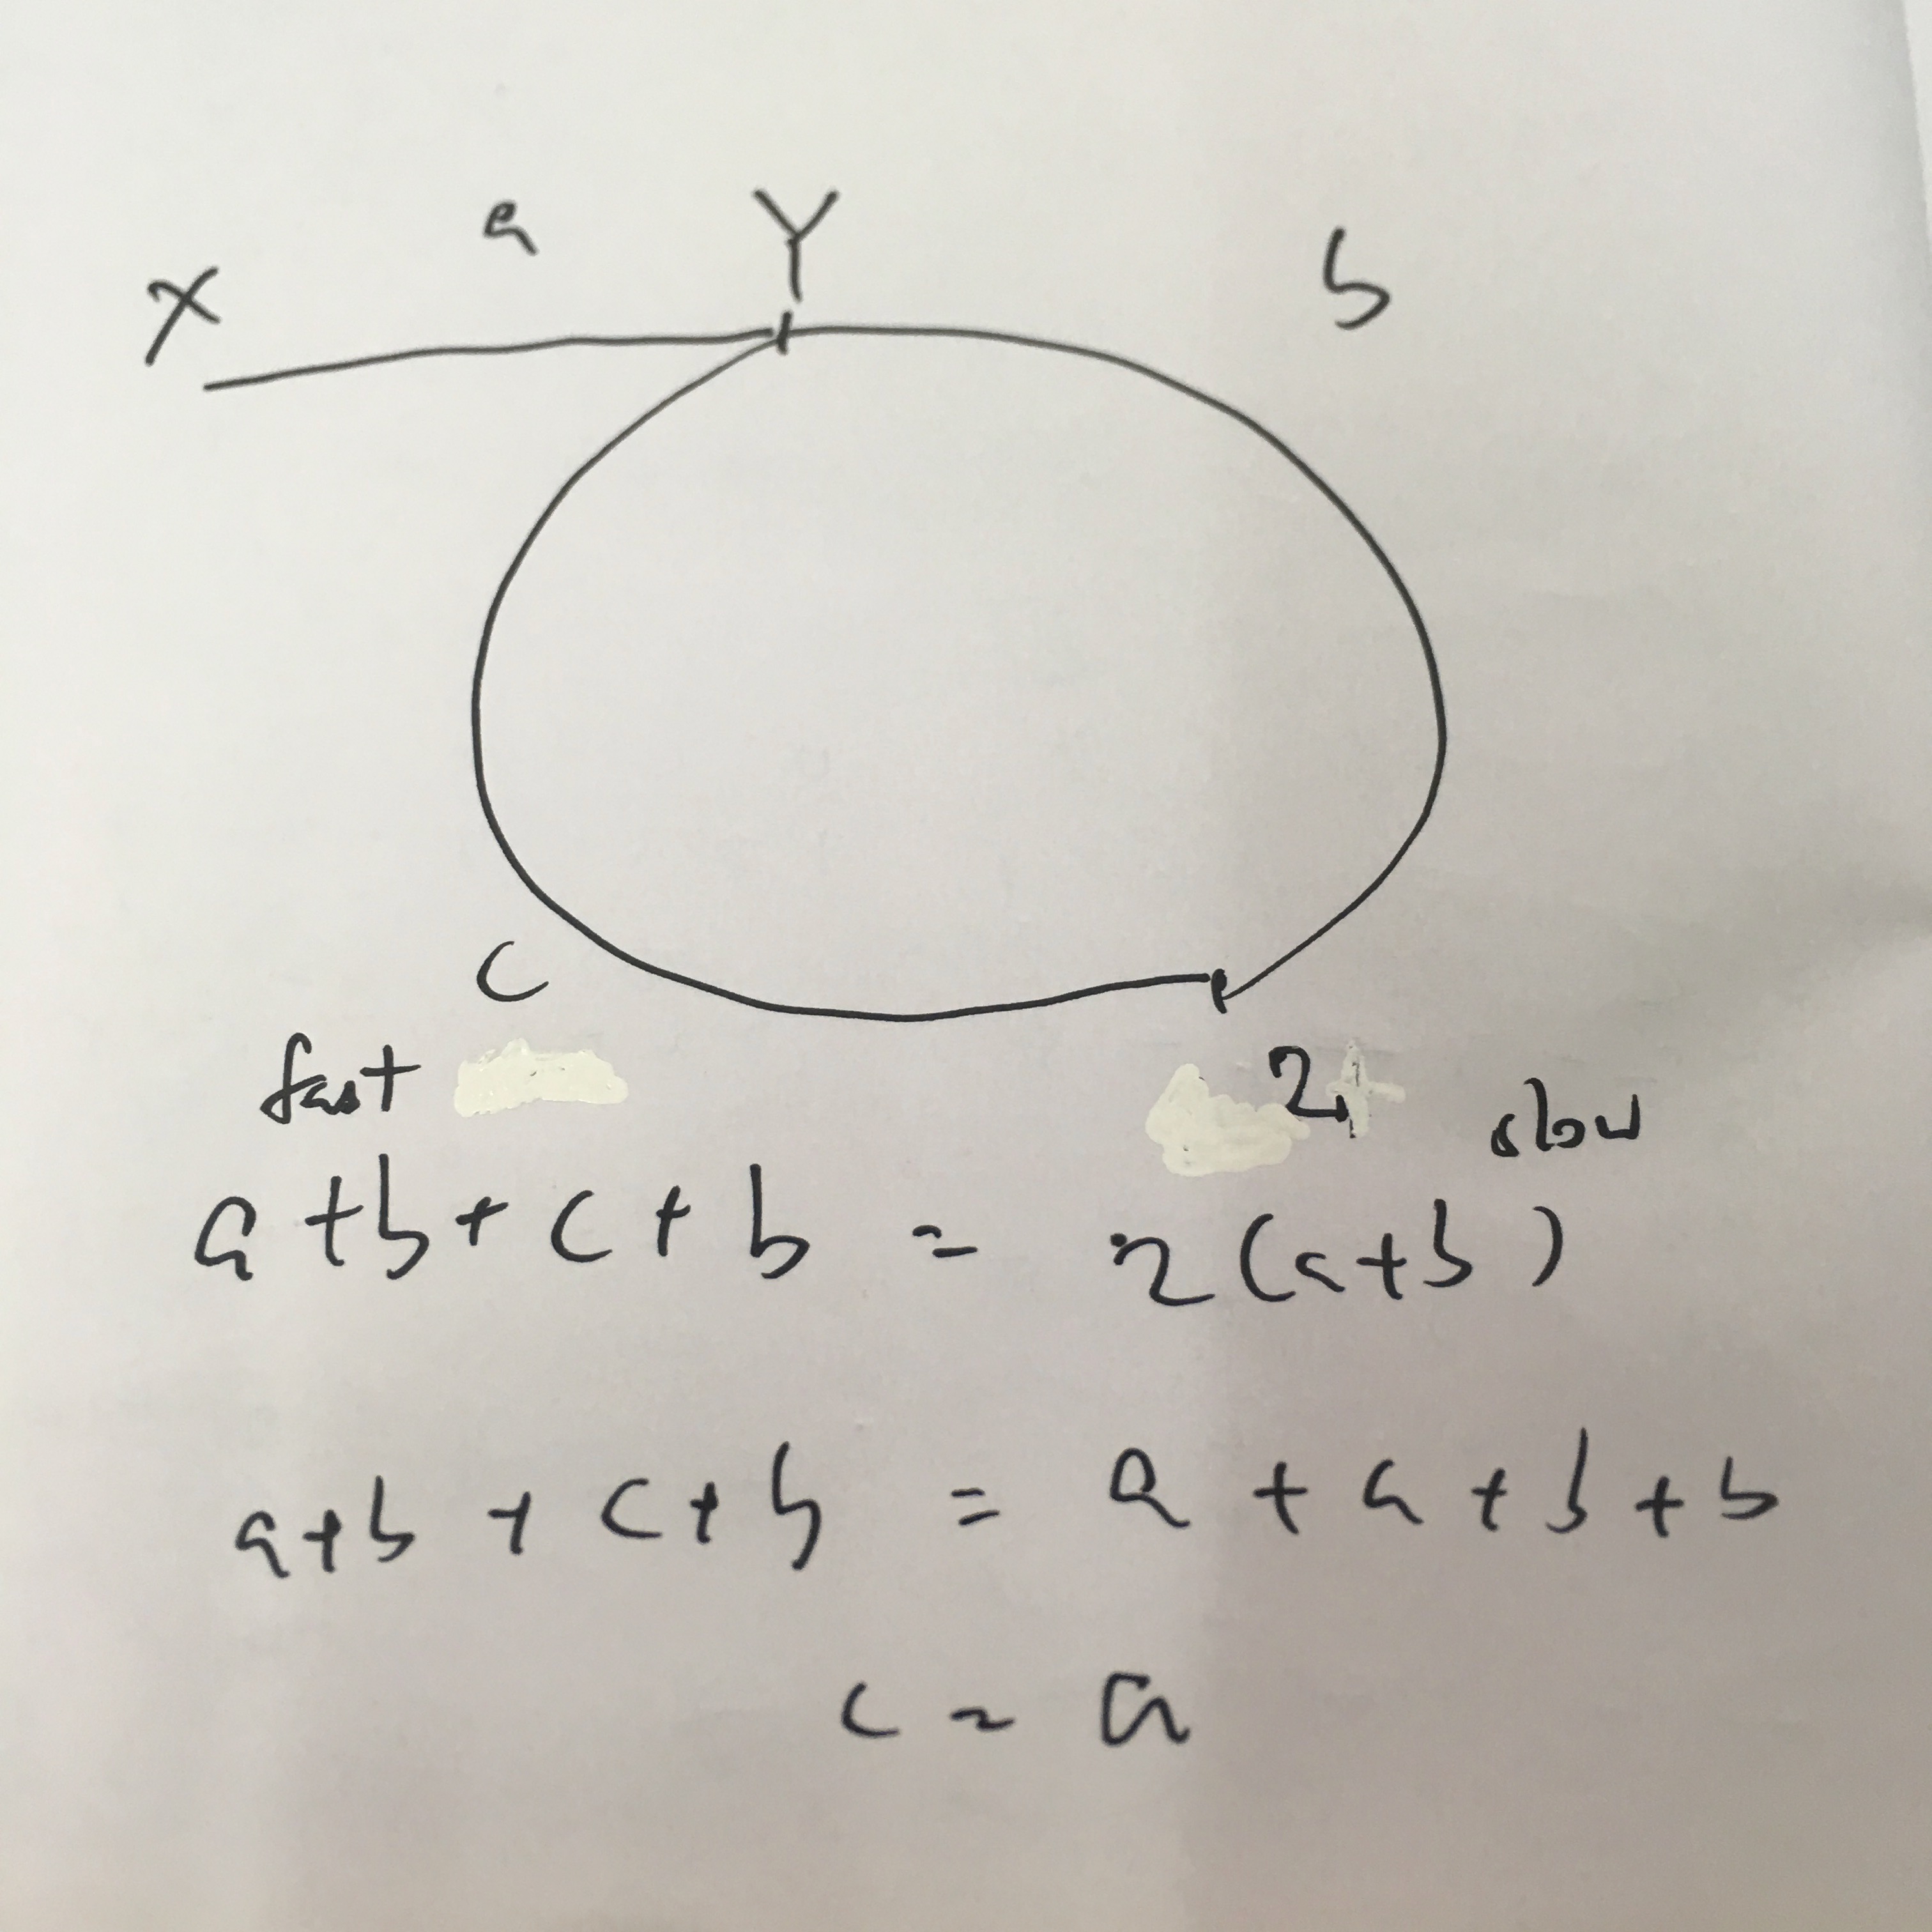 a Y b
X
C
fast 2 slow
a + b + c + b = 2(a+b)
a+b + c + b = a + a + b + b
c = a